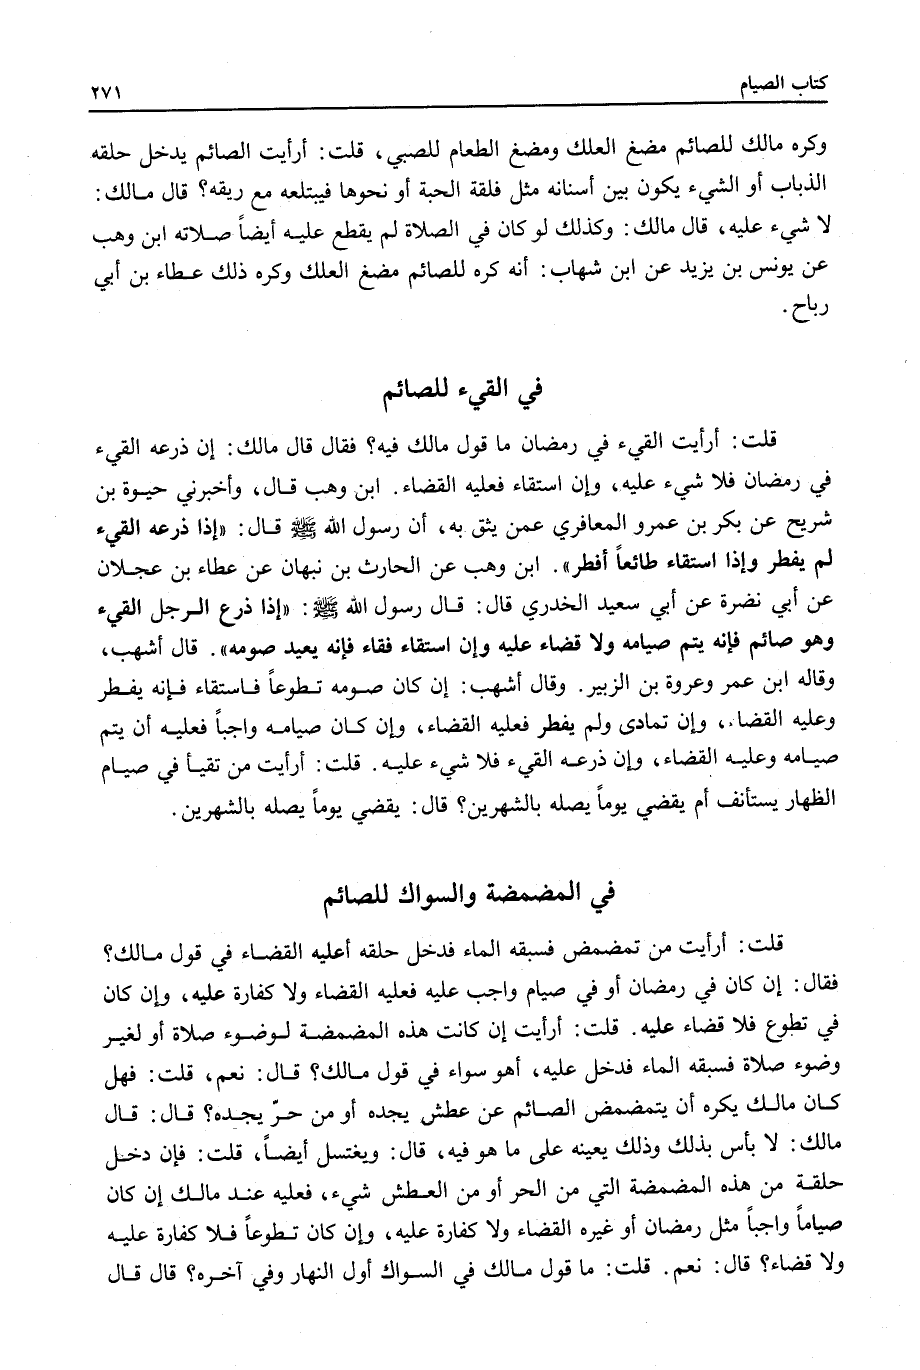 كتاب الصيام
٢٧١
وكره مالك للصائم مضغ العلك ومضغ الطعام للصبي، قلت: أرأيت الصائم يدخل حلقه
الذباب أو الشيء يكون بين أسنانه مثل فلقة الحبة أو نحوها فيبتلعه مع ريقه؟ قال مالك:
لا شيء عليه، قال مالك: وكذلك لو كان في الصلاة لم يقطع عليه أيضاً صلاته ابن وهب
عن يونس بن يزيد عن ابن شهاب: أنه كره للصائم مضغ العلك وكره ذلك عطاء بن أبي
رباح.
في القيء للصائم
قلت: أرأيت القيء في رمضان ما قول مالك فيه؟ فقال قال مالك: إن ذرعه القيء
في رمضان فلا شيء عليه، وإن استقاء فعليه القضاء. ابن وهب قال، وأخبرني حيوة بن
شريح عن بكر بن عمرو المعافري عمن يثق به، أن رسول الله ﷺ قال: «إذا ذرعه القيء
لم يفطر وإذا استقاء طائعاً أفطر». ابن وهب عن الحارث بن نبهان عن عطاء بن عجلان
عن أبي نضرة عن أبي سعيد الخدري قال: قال رسول الله ﷺ: «إذا ذرع الرجل القيء
وهو صائم فإنه يتم صيامه ولا قضاء عليه وإن استقاء فقاء فإنه يعيد صومه». قال أشهب،
وقاله ابن عمر وعروة بن الزبير. وقال أشهب: إن كان صومه تطوعاً فاستقاء فإنه يفطر
وعليه القضاء، وإن تمادى ولم يفطر فعليه القضاء، وإن كان صيامه واجباً فعليه أن يتم
صيامه وعليه القضاء، وإن ذرعه القيء فلا شيء عليه. قلت: أرأيت من تقيأ في صيام
الظهار يستأنف أم يقضي يوماً يصله بالشهرين؟ قال: يقضي يوماً يصله بالشهرين.
في المضمضة والسواك للصائم
قلت: أرأيت من تمضمض فسبقه الماء فدخل حلقه أعليه القضاء في قول مالك؟
فقال: إن كان في رمضان أو في صيام واجب عليه فعليه القضاء ولا كفارة عليه، وإن كان
في تطوع فلا قضاء عليه. قلت: أرأيت إن كانت هذه المضمضة لوضوء صلاة أو لغير
وضوء صلاة فسبقه الماء فدخل عليه، أهو سواء في قول مالك؟ قال: نعم، قلت: فهل
كان مالك يكره أن يتمضمض الصائم عن عطش يجده أو من حرّ يجده؟ قال: قال
مالك: لا بأس بذلك وذلك يعينه على ما هو فيه، قال: ويغتسل أيضاً، قلت: فإن دخل
حلقة من هذه المضمضة التي من الحر أو من العطش شيء، فعليه عند مالك إن كان
صياماً واجباً مثل رمضان أو غيره القضاء ولا كفارة عليه، وإن كان تطوعاً فلا كفارة عليه
ولا قضاء؟ قال: نعم. قلت: ما قول مالك في السواك أول النهار وفي آخره؟ قال قال